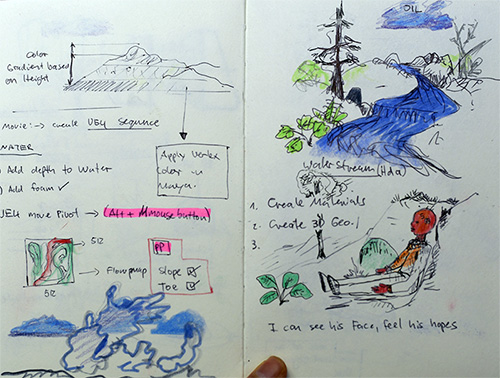 Color
Gradient based
on Height
Movie:→ create UE4 Sequence
WATER
) Add depth to Water
) Add foam ✓
UE4 move Pivot → (Alt + Mmouse button)
Apply Vertex
Color in
Maya.
512
512
→ Flowmap
PP
Slope
Toe
OIL
Water stream (Hda)
1. Create Materials
2. Create 3D Geo.
3.
I can see his face, feel his hopes